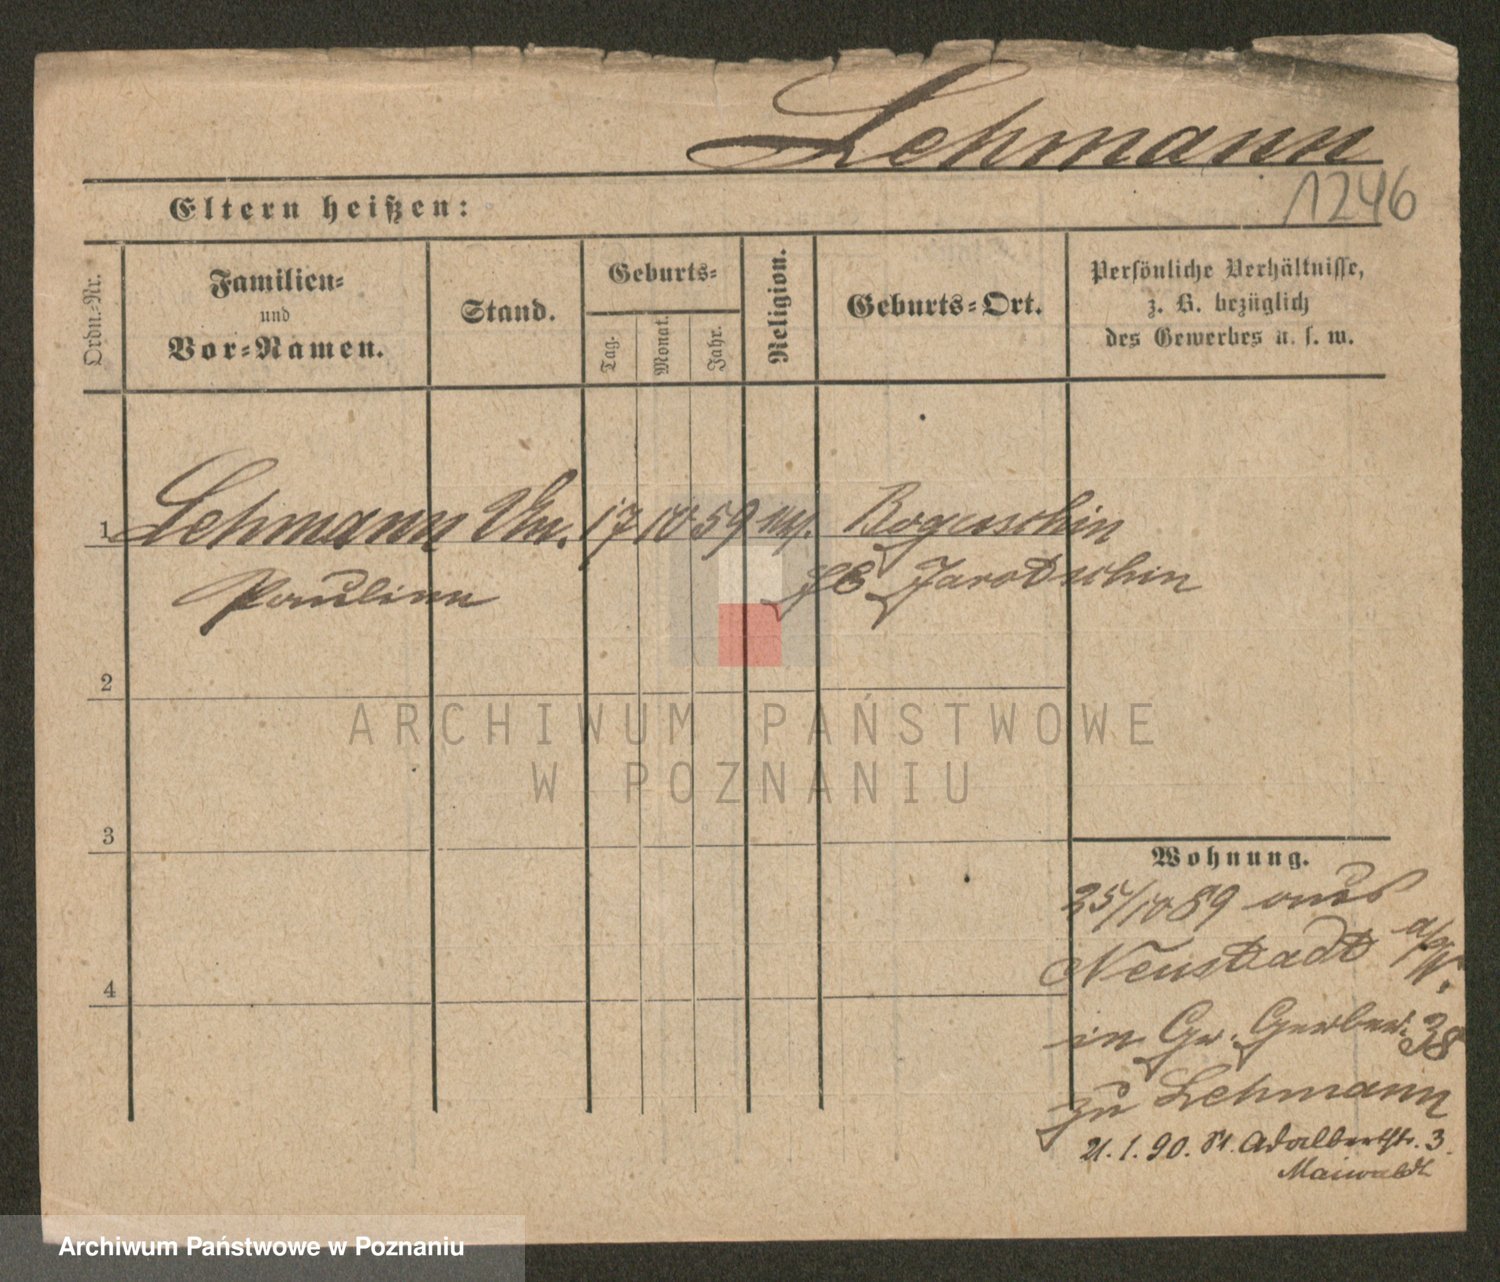 Lehmann
1246
Eltern heißen:
Ordn.-Nr.
Familien-
und
Vor-Namen.
Stand.
Geburts-
Tag.
Monat.
Jahr.
Religion.
Geburts-Ort.
Persönliche Verhältnisse,
z. B. bezüglich
des Gewerbes u. s. w.
1 Lehmann 17 10 59 Boguschin
Pauline Jarotschin
2
3
4
ARCHIWUM PAŃSTWOWE
W POZNANIU
Wohnung.
25/10 89 aus
Neustadt a/W.
in Gr. Gerber. 38
zu Lehmann
21. 1. 90. St. Adalbertstr. 3.
Maiwaldt
Archiwum Państwowe w Poznaniu